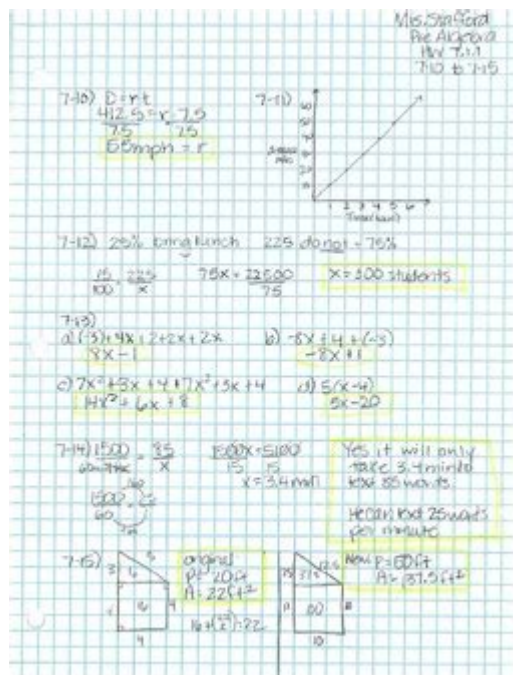 Mrs. Stafford
Pre Algebra
HW 7.1.1
7-10 to 7-15
7-10) D = rt
412.5 = r · 7.5
7.5 7.5
55mph = r
7-11)
1 2 3 4 5 6
Time (hours)
7-12) 25% bring lunch 225 do not = 75%
75/100 = 225/x 75x = 22500/75 x = 300 students
7-13)
a) (-3) + 4x + 2 + 2x + 2x b) -8x + 4 + (-3)
8x - 1 -8x + 1
c) 7x² + 3x + 4 + 7x² + 3x + 4 d) 5(x-4)
14x² + 6x + 8 5x - 20
7-14) 1500 = 85
x
1500x = 5100
15 15
x = 3.4 min
1500
60
Yes it will only
take 3.4 min to
text 85 words.
He can text 25 words
per minute
7-15)
3 6 5
16 4
4
original
P = 20ft
A = 22ft²
7.5 37.5 12.5
100
10
New P = 50ft
A = 137.5ft²